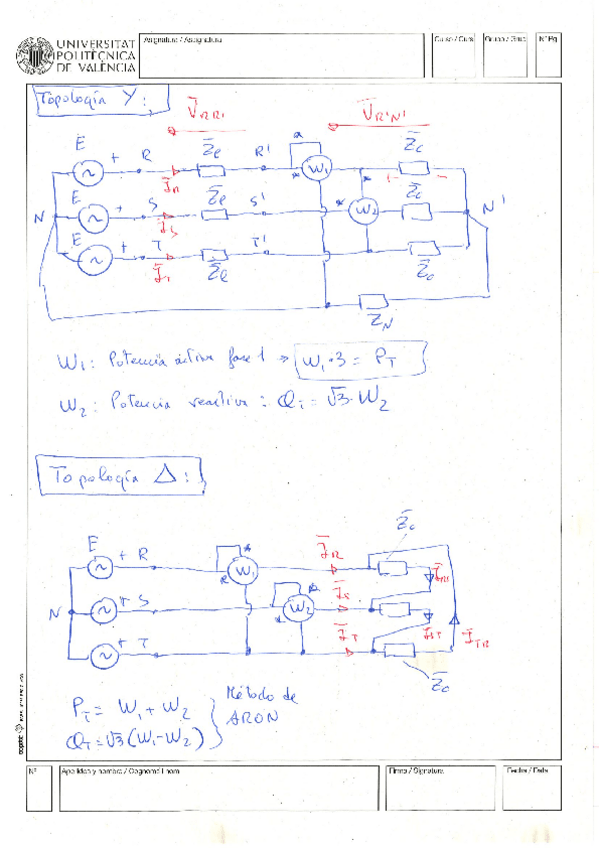 UNIVERSITAT
POLITÈCNICA
DE VALÈNCIA
Asignatura / Assignatura
Curso / Curs
Grupo / Grup
Nº Pg
Topología Y:
V̄RR' V̄R'N'
E + R Z̄e R' W1 Z̄c
ĪR
E + S Z̄e S' W2 Z̄c
N ĪS N'
E + T Z̄e T' Z̄c
ĪT
Z̄N
W1: Potencia activa fase 1 → W1·3 = PT
W2: Potencia reactiva: QT = √3·W2
Topología Δ:
E + R W1 ĪR Z̄c
ĪRS
N + S W2 ĪS
+ T ĪT ĪST ĪTR
Z̄c
PT = W1 + W2
QT = √3(W1-W2)
Método de
ARON
Nº
Apellidos y nombre / Cognoms i nom
Firma / Signatura
Fecha / Data